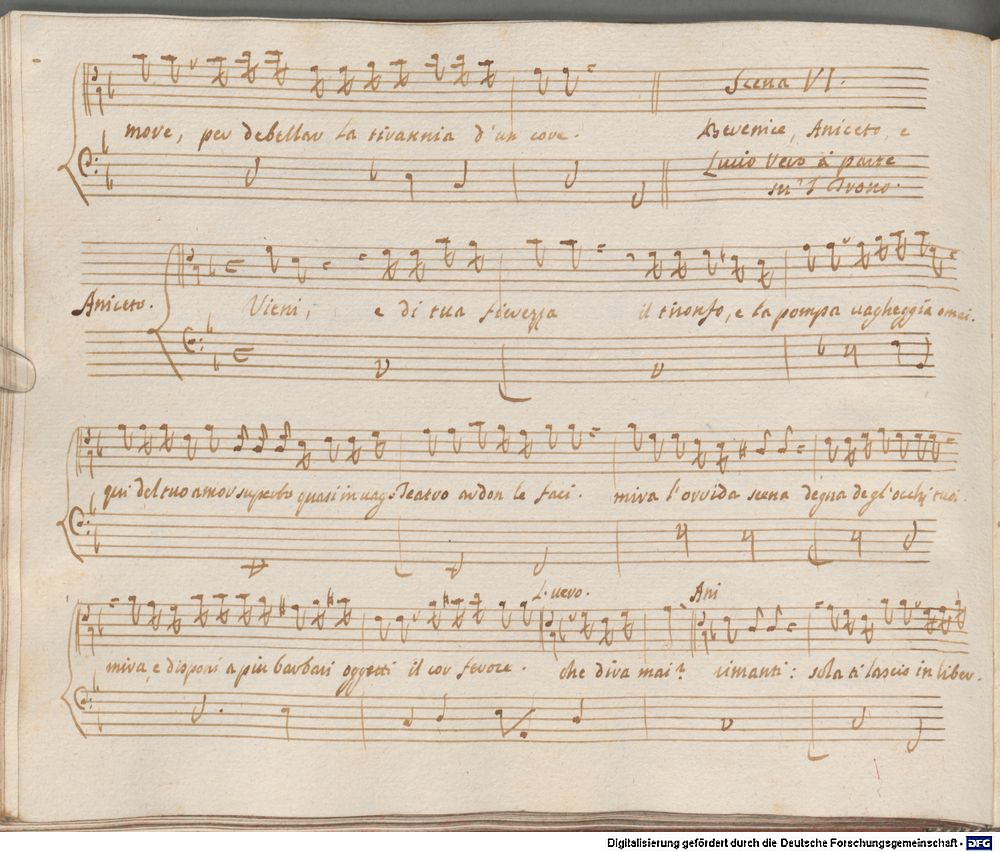 move, per debellar la tirannia d'un core.
Scena VI.
Berenice, Aniceto, e
Lucio Vero à parte
su'l Trono.
Aniceto.
Vieni, e di tua fierezza il trionfo, e la pompa vagheggia omai.
qui del tuo amor superbo quasi in vago Teatro ardon le faci. mira l'orrida scena degna degl'occhi tuoi.
L. vero. Ani
mira, e disponi a piu barbari oggetti il cor feroce. che dira mai? rimanti: sola ti lascio in liber-
Digitalisierung gefördert durch die Deutsche Forschungsgemeinschaft - DFG